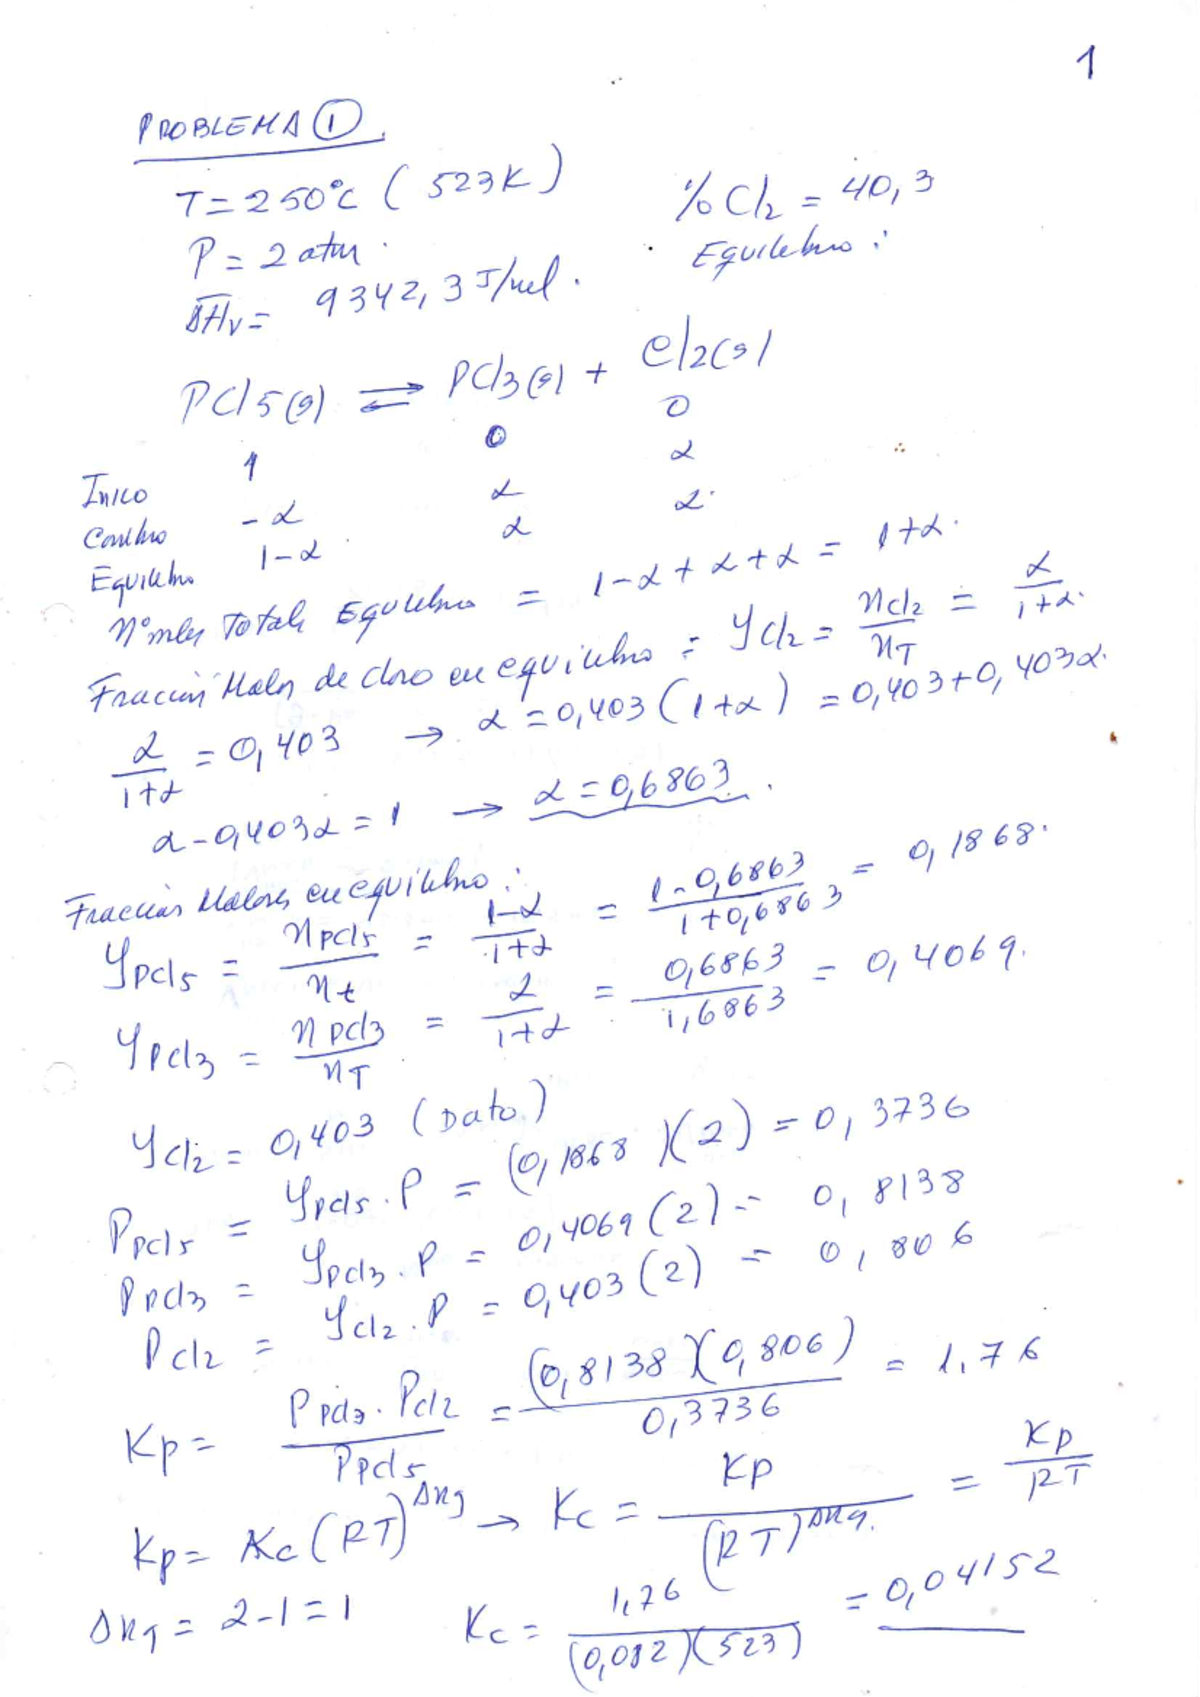 1
PROBLEMA ①.
T = 250°C (523K)
% Cl2 = 40,3
P = 2 atm.
Equilibrio:
ΔHv = 9342,3 J/mol.
PCl5(g) ⇌ PCl3(g) + Cl2(g)
Inicio 1 0 0
Cambio -α α α
Equilibrio 1-α α α.
Nº moles Totales Equilibrio = 1-α+α+α = 1+α.
Fracción Molar de cloro en equilibrio = YCl2 = nCl2/nT = α/1+α.
α/1+α = 0,403 → α = 0,403 (1+α) = 0,403+0,403α.
α-0,403α = 1 → α = 0,6863.
Fracciones Molares en equilibrio:
YPCl5 = nPCl5/nt = 1-α/1+α = 1-0,6863/1+0,6863 = 0,1868.
YPCl3 = nPCl3/nT = α/1+α = 0,6863/1,6863 = 0,4069.
YCl2 = 0,403 (Dato)
PPCl5 = YPCl5 . P = (0,1868)(2) = 0,3736
PPCl3 = YPCl3 . P = 0,4069(2) = 0,8138
PCl2 = YCl2 . P = 0,403(2) = 0,806
Kp = PPCl3 . PCl2/PPCl5 = (0,8138)(0,806)/0,3736 = 1,76
Kp = Kc(RT)^Δng → Kc = Kp/(RT)^Δng. = Kp/RT
Δng = 2-1 = 1
Kc = 1,76/(0,082)(523) = 0,04152